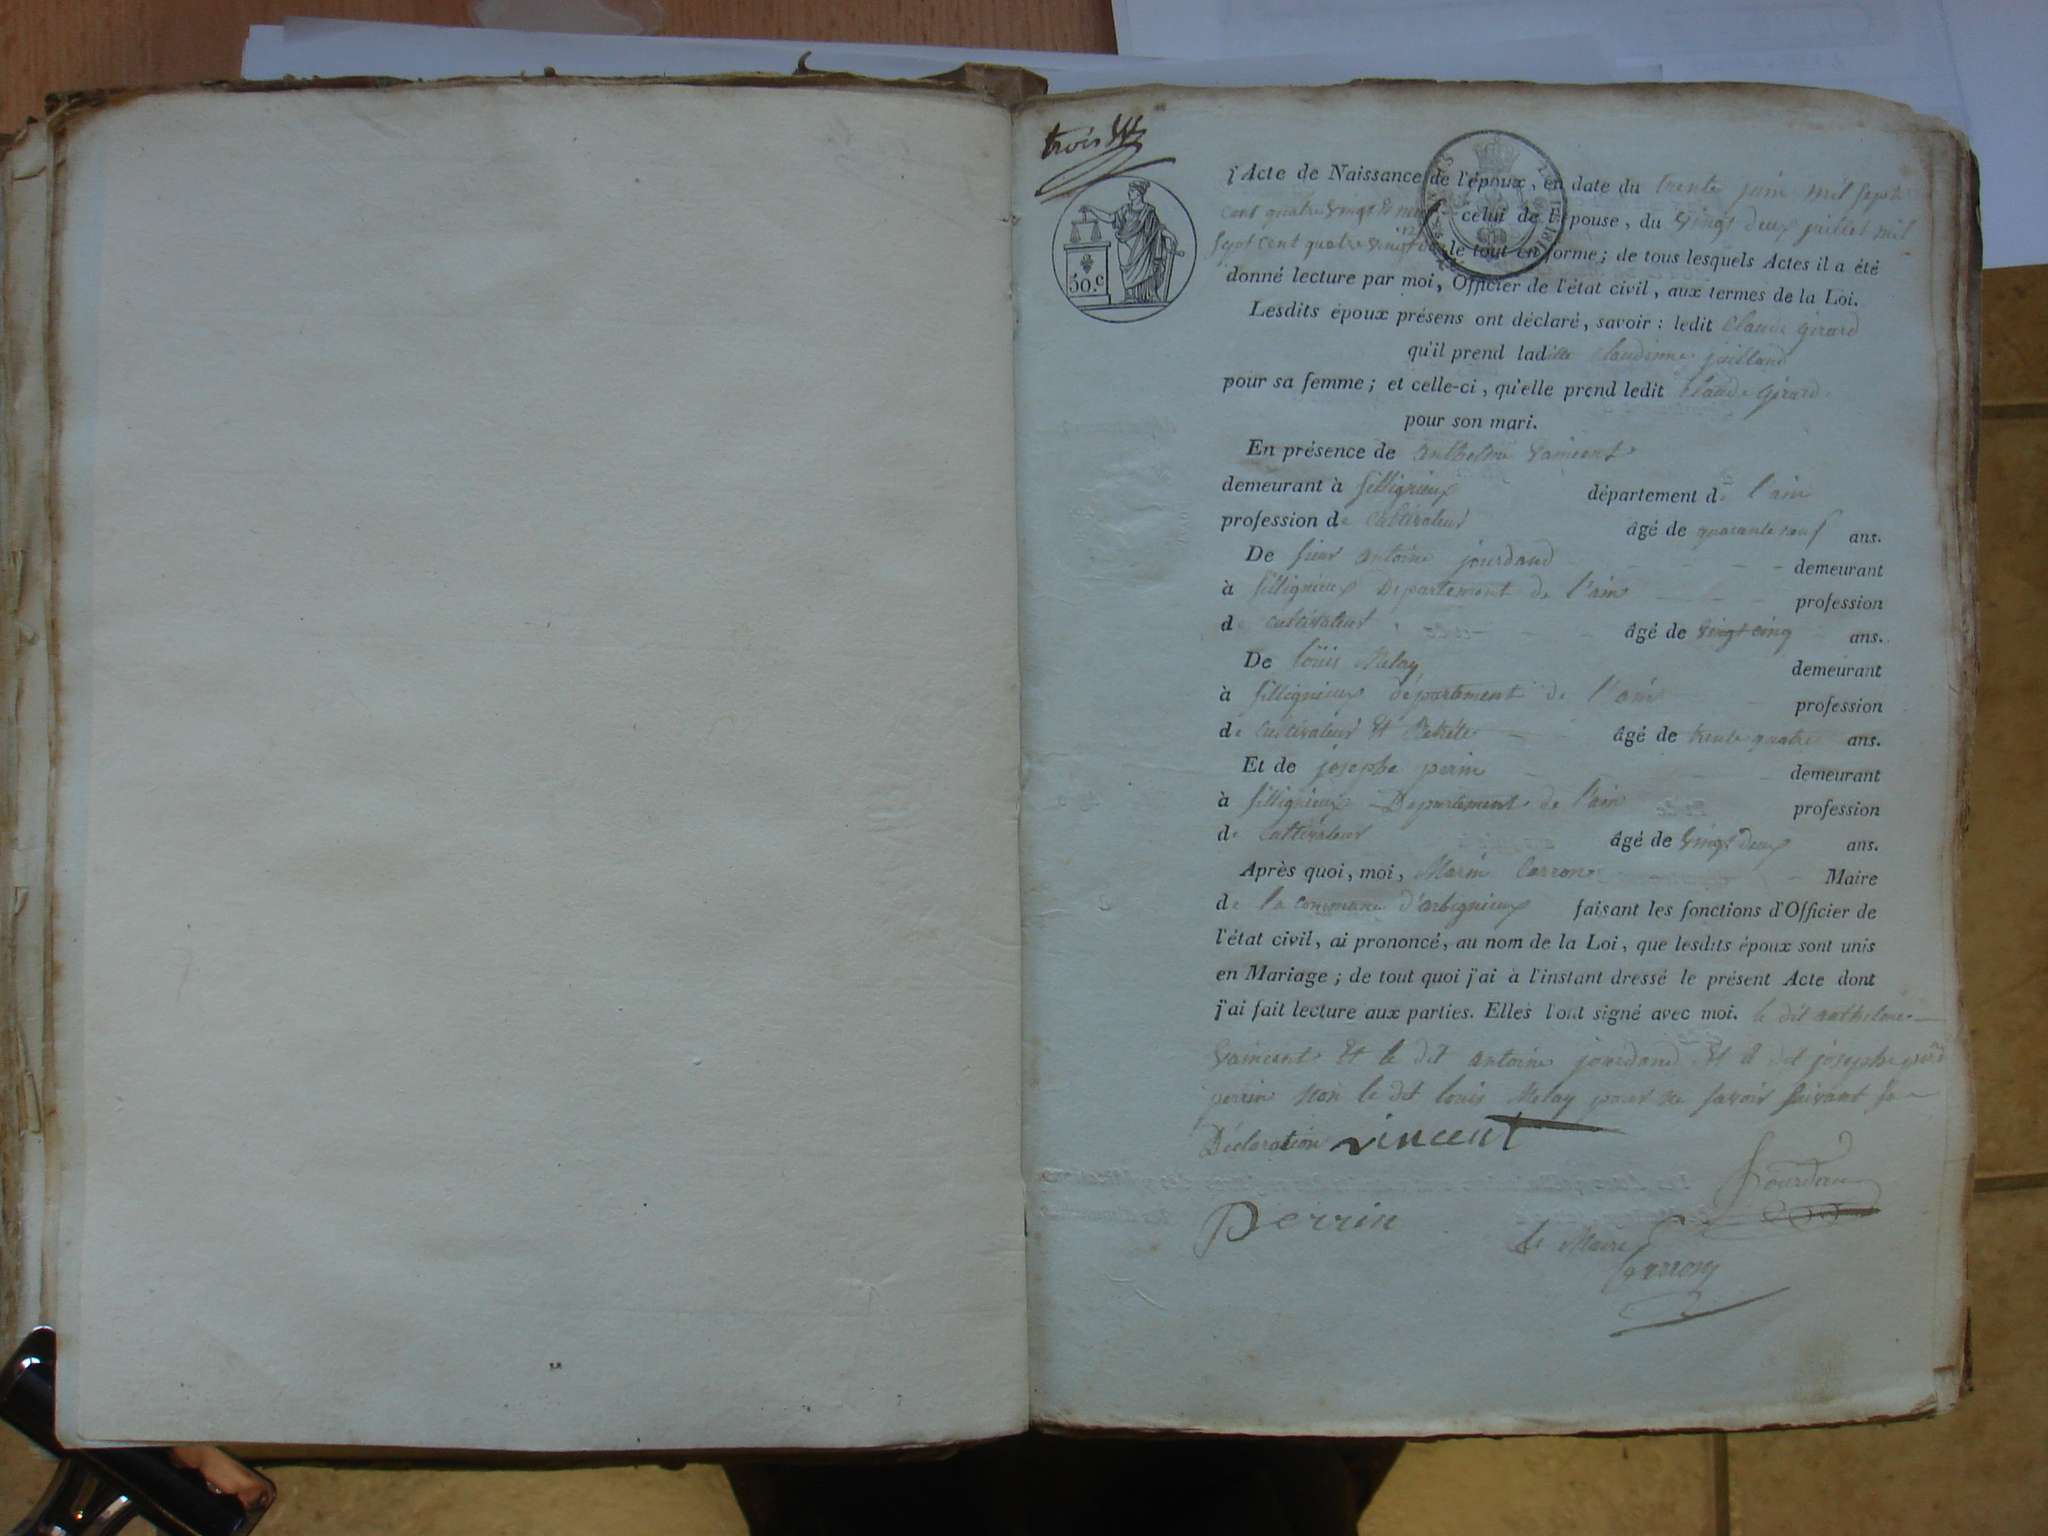 trois
50.c
l'Acte de Naissance de l'époux, en date du trente juin mil sept
cent quatre vingt et neuf celui de l'épouse, du vingt deux juillet mil
sept cent quatre vingt le tout en forme; de tous lesquels Actes il a été
donné lecture par moi, Officier de l'état civil, aux termes de la Loi.
Lesdits époux présens ont déclaré, savoir: ledit Claude girard
qu'il prend ladite Claudinne juilland
pour sa femme; et celle-ci, qu'elle prend ledit Claude girard
pour son mari.
En présence de anthelme vaincent
demeurant à Sillignieux département de l'ain
profession de Cultivateur âgé de quarante neuf ans.
De sieur antoine jourdand demeurant
à Sillignieux Departement de l'ain profession
de cultivateur âgé de vingt cinq ans.
De loüis Melay demeurant
à Sillignieux département de l'ain profession
de Cultivateur et âgé de trente quatre ans.
Et de josephe perin demeurant
à Sillignieux Departement de l'ain profession
de Cultivateur âgé de vingt deux ans.
Après quoi, moi, Marin Carron Maire
de la commune d'arbignieux faisant les fonctions d'Officier de
l'état civil, ai prononcé, au nom de la Loi, que lesdits époux sont unis
en Mariage; de tout quoi j'ai à l'instant dressé le présent Acte dont
j'ai fait lecture aux parties. Elles l'ont signé avec moi. le dit anthelme
vaincent et le dit antoine jourdand et le dit josephe
perrin Non le dit louis Melay pour ne savoir suivant sa
Déclaration vincent
Jourdan
Perrin
le Maire
Carron